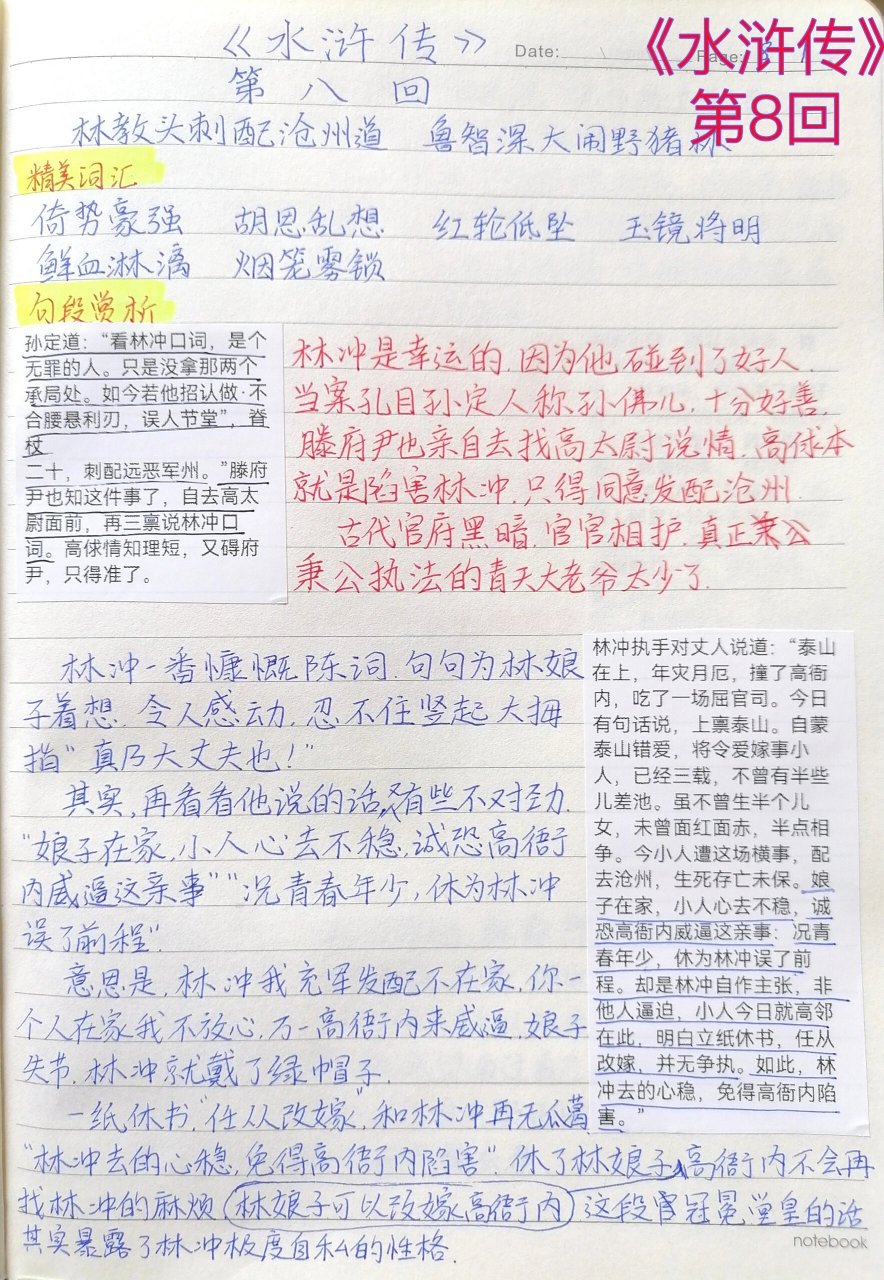 《水浒传》
Date:
Page:
《水浒传》
第8回
第八回
林教头刺配沧州道 鲁智深大闹野猪林
精美词汇
倚势豪强 胡思乱想 红轮低坠 玉镜将明
鲜血淋漓 烟笼雾锁
句段赏析
孙定道：“看林冲口词，是个
无罪的人。只是没拿那两个
承局处。如今若他招认做·不
合腰悬利刃，误人节堂”，脊
杖
二十，刺配远恶军州。”滕府
尹也知这件事了，自去高太
尉面前，再三禀说林冲口
词。高俅情知理短，又碍府
尹，只得准了。
林冲是幸运的，因为他碰到了好人，
当案孔目孙定人称孙佛儿，十分好善，
滕府尹也亲自去找高太尉说情，高俅本
就是陷害林冲，只得同意发配沧州．
古代官府黑暗，官官相护，真正
秉公执法的青天大老爷太少了．
林冲一番慷慨陈词，句句为林娘
子着想，令人感动，忍不住竖起大拇
指“真乃大丈夫也！”
其实，再看看他说的话，又有些不对劲．
“娘子在家，小人心去不稳，诚恐高衙
内威逼这亲事”“况青春年少，休为林冲
误了前程”．
意思是，林冲我充军发配不在家，你一
个人在家我不放心，万一高衙内来威逼，娘子
失节，林冲就戴了绿帽子．
一纸休书，“任从改嫁”，和林冲再无瓜葛
“林冲去的心稳，免得高衙内陷害”．休了林娘子，高衙内不会再
找林冲的麻烦（林娘子可以改嫁高衙内）这段冠冕堂皇的话
其实暴露了林冲极度自私的性格．
林冲执手对丈人说道：“泰山
在上，年灾月厄，撞了高衙
内，吃了一场屈官司。今日
有句话说，上禀泰山。自蒙
泰山错爱，将令爱嫁事小
人，已经三载，不曾有半些
儿差池。虽不曾生半个儿
女，未曾面红面赤，半点相
争。今小人遭这场横事，配
去沧州，生死存亡未保。娘
子在家，小人心去不稳，诚
恐高衙内威逼这亲事：况青
春年少，休为林冲误了前
程。却是林冲自作主张，非
他人逼迫，小人今日就高邻
在此，明白立纸休书，任从
改嫁，并无争执。如此，林
冲去的心稳，免得高衙内陷
害。”
notebook